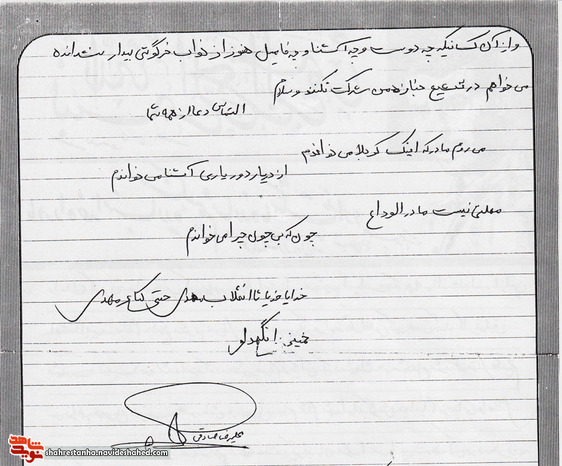 و از آن کسانیکه چه دوست و چه آشنا و چه فامیل هنوز از خواب خرگوشی بیدار نشده‌اند
می‌خواهم در تشییع جنازه من شرکت نکنند و سلام
التماس دعا از همه شما
می روم مادر که اینک کربلا می خواندم
از دیار دور یاری آشنا می خواندم
مهلتی نیست مادر الوداع
چون که بی چون چرا می خواندم
خدایا خدایا تا انقلاب مهدی حتی کنار مهدی
خمینی را نگهدار
علیرضا صادقی
نوید شاهد
shahrestanha.navideshahed.com